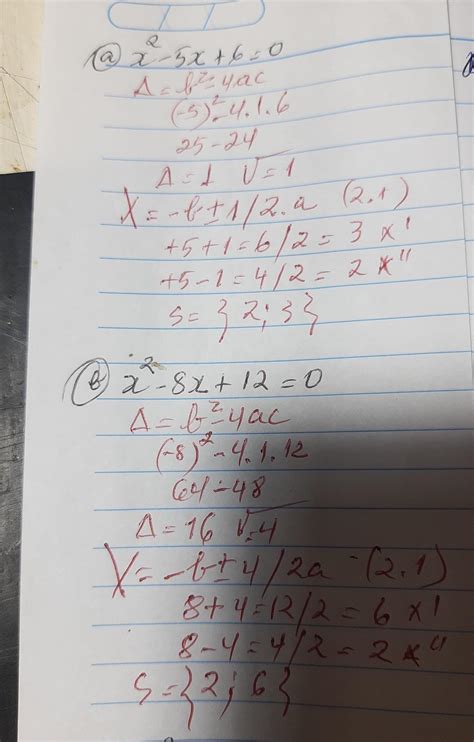 a) x² - 5x + 6 = 0
Δ = b² - 4ac
(-5)² - 4.1.6
25 - 24
Δ = 1 √ = 1
X = -b ± 1 / 2.a (2.1)
+5 + 1 = 6/2 = 3 x'
+5 - 1 = 4/2 = 2 x''
S = { 2 ; 3 }
b) x² - 8x + 12 = 0
Δ = b² - 4ac
(-8)² - 4.1.12
64 - 48
Δ = 16 √ = 4
X = -b ± 4 / 2a - (2.1)
8 + 4 = 12/2 = 6 x'
8 - 4 = 4/2 = 2 x''
S = { 2 ; 6 }